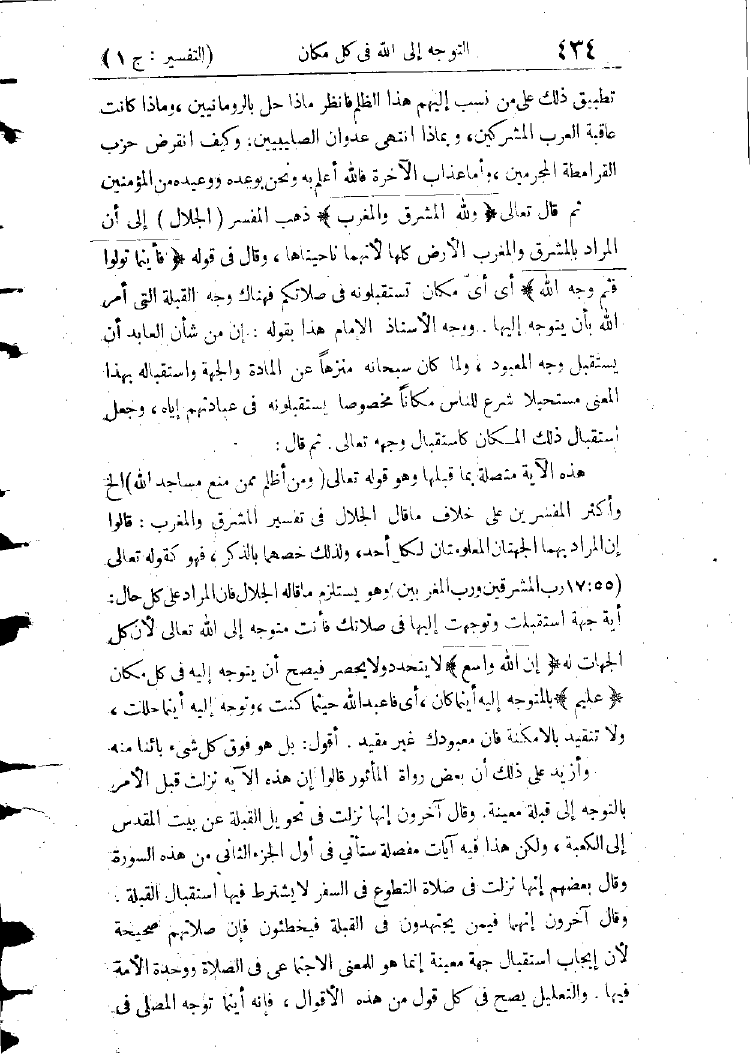 ٤٣٤ التوجه إلى الله فى كل مكان (التفسير : ج ١)
تطبيق ذلك على من نسب إليهم هذا الظلم فانظر ماذا حل بالرومانيين ، وماذا كانت
عاقبة العرب المشركين، وبماذا انتهى عدوان الصليبيين: وكيف انقرض حزب
القرامطة المجرمين ، وأما عذاب الآخرة فالله أعلم به ونحن بوعده ووعيده من المؤمنين
ثم قال تعالى ﴿ ولله المشرق والمغرب ﴾ ذهب المفسر ( الجلال ) إلى أن
المراد بالمشرق والمغرب الأرض كلها لأنهما ناحيتاها ، وقال فى قوله ﴿ فأينما تولوا
فثم وجه الله ﴾ أى أىّ مكان تستقبلونه فى صلاتكم فهناك وجه القبلة التى أمر
الله بأن يتوجه إليها . ووجه الأستاذ الإمام هذا بقوله : إن من شأن العابد أن
يستقبل وجه المعبود ، ولما كان سبحانه منزهاً عن المادة والجهة واستقباله بهذا
المعنى مستحيلا شرع للناس مكاناً مخصوصا يستقبلونه فى عبادتهم إياه ، وجعل
استقبال ذلك المكان كاستقبال وجهه تعالى . ثم قال :
هذه الآية متصلة بما قبلها وهو قوله تعالى ( ومن أظلم ممن منع مساجد الله ) الخ
وأكثر المفسرين على خلاف ماقال الجلال فى تفسير المشرق والمغرب : قالوا
إن المراد بهما الجهتان المعلومتان لكل أحد، ولذلك خصهما بالذكر ، فهو كقوله تعالى
(١٧:٥٥ رب المشرقين ورب المغربين) وهو يستلزم ماقاله الجلال فان المراد على كل حال :
أية جهة استقبلت وتوجهت إليها فى صلاتك فأنت متوجه إلى الله تعالى لأن كل
الجهات له ﴿ إن الله واسع ﴾ لا يتحدد ولا يحصر فيصح أن يتوجه إليه فى كل مكان
﴿ عليم ﴾ بالمتوجه إليه أينما كان ، أى فاعبد الله حيثما كنت ، وتوجه إليه أينما حللت ،
ولا تتقيد بالامكنة فان معبودك غير مقيد . أقول: بل هو فوق كل شىء بائنا منه
وأزيد على ذلك أن بعض رواة المأثور قالوا إن هذه الآية نزلت قبل الأمر
بالتوجه إلى قبلة معينة. وقال آخرون إنها نزلت فى تحويل القبلة عن بيت المقدس
إلى الكعبة ، ولكن هذا فيه آيات مفصلة ستأتى فى أول الجزء الثانى من هذه السورة
وقال بعضهم إنها نزلت فى صلاة التطوع فى السفر لا يشترط فيها استقبال القبلة .
وقال آخرون إنهما فيمن يجتهدون فى القبلة فيخطئون فإن صلاتهم صحيحة
لأن إيجاب استقبال جهة معينة إنما هو للمعنى الاجتماعى فى الصلاة ووحدة الأمة
فيها . والتعليل يصح فى كل قول من هذه الأقوال ، فإنه أينما توجه المصلى فى